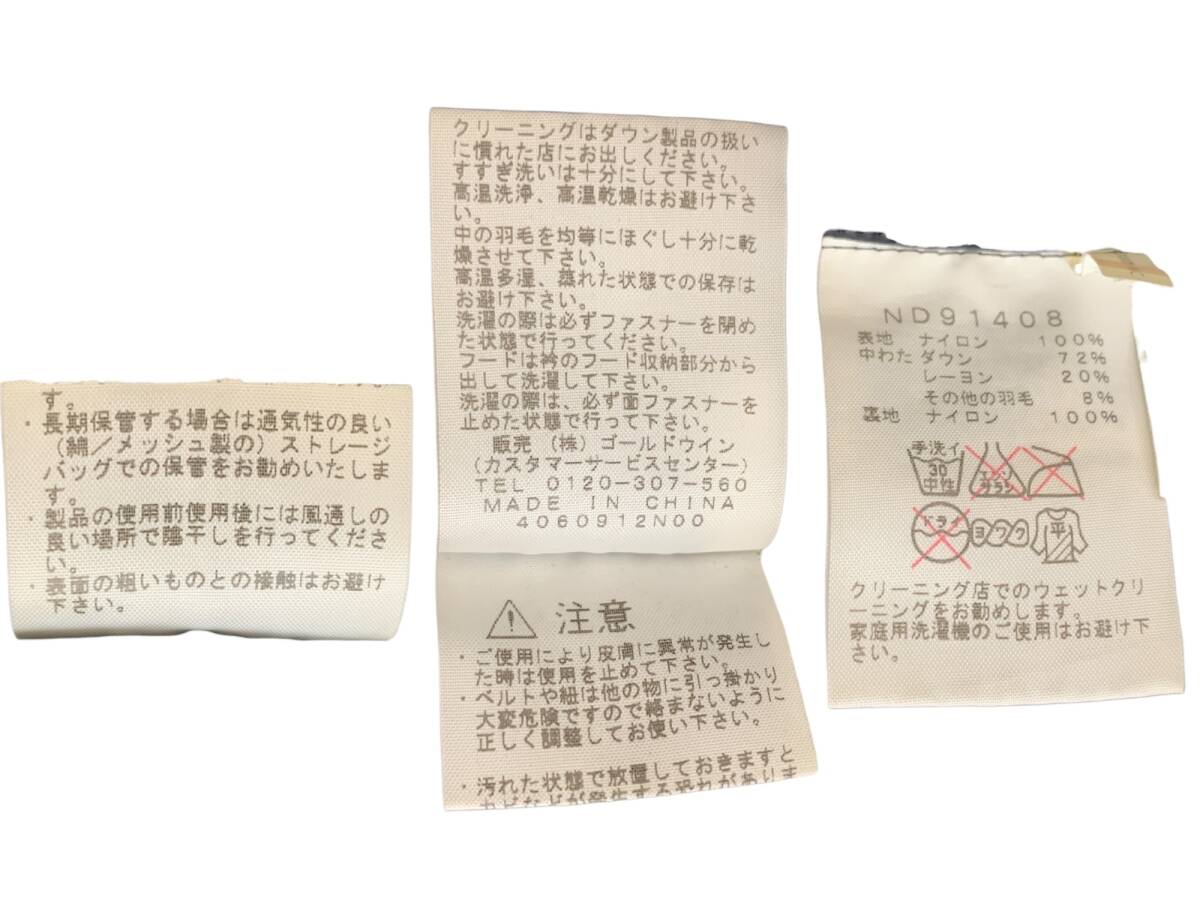 す。
・長期保管する場合は通気性の良い
(綿／メッシュ製の)ストレージ
バッグでの保管をお勧めいたしま
す。
・製品の使用前使用後には風通しの
良い場所で陰干しを行ってくださ
い。
・表面の粗いものとの接触はお避け
下さい。
クリーニングはダウン製品の扱い
に慣れた店にお出しください。
すすぎ洗いは十分にして下さい。
高温洗浄、高温乾燥はお避け下さ
い。
中の羽毛を均等にほぐし十分に乾
燥させて下さい。
高温多湿、蒸れた状態での保存は
お避け下さい。
洗濯の際は必ずファスナーを閉め
た状態で行ってください。
フードは衿のフード収納部分から
出して洗濯して下さい。
洗濯の際は、必ず面ファスナーを
止めた状態で行って下さい。
販売 (株)ゴールドウイン
(カスタマーサービスセンター)
TEL 0120-307-560
MADE IN CHINA
4060912N00
注意
・ご使用により皮膚に異常が発生し
た時は使用を止めて下さい。
・ベルトや紐は他の物に引っ掛かり
大変危険ですので絡まないように
正しく調整してお使い下さい。
・汚れた状態で放置しておきますと
カビなどが発生する恐れがありま
ND91408
表地 ナイロン 100%
中わた ダウン 72%
レーヨン 20%
その他の羽毛 8%
裏地 ナイロン 100%
手洗イ
30
中性
エンソ
サラシ
ドライ
ヨワク
平
クリーニング店でのウェットクリ
ーニングをお勧めします。
家庭用洗濯機のご使用はお避け下
さい。